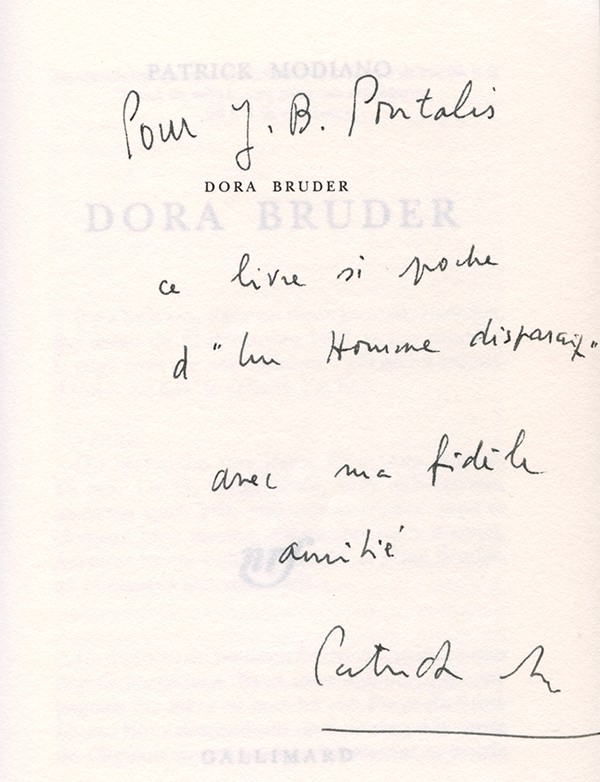 PATRICK MODIANO
Pour J. B. Pontalis
DORA BRUDER
DORA BRUDER
ce livre si proche
d'"Un Homme disparaît"
avec ma fidèle
nrf
amitié
Patrick M
GALLIMARD